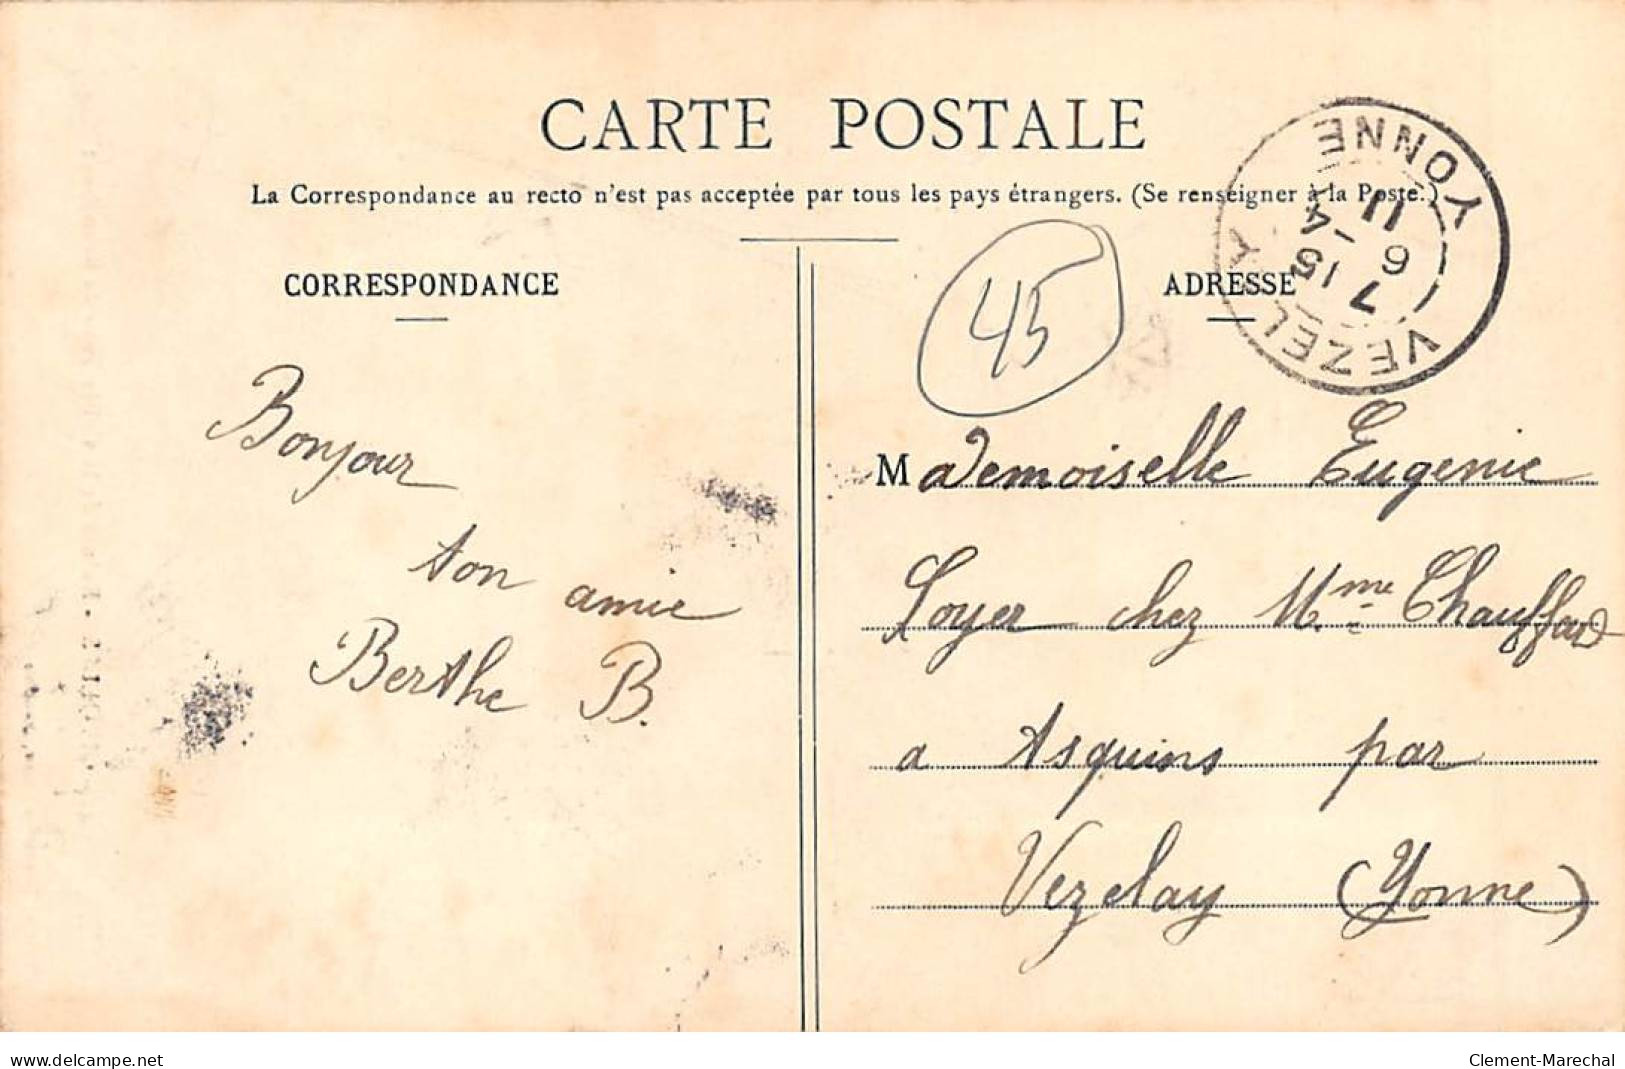 CARTE POSTALE
La Correspondance au recto n'est pas acceptée par tous les pays étrangers. (Se renseigner à la Poste.)
CORRESPONDANCE
ADRESSE
45
VEZELAY
YONNE
7 15
6 -4
11
Bonjour
ton amie
Berthe B.
Mademoiselle Eugenie
Loyer chez Mme Chauffard
a Asquins par
Vezelay (Yonne)
www.delcampe.net
Clement-Marechal